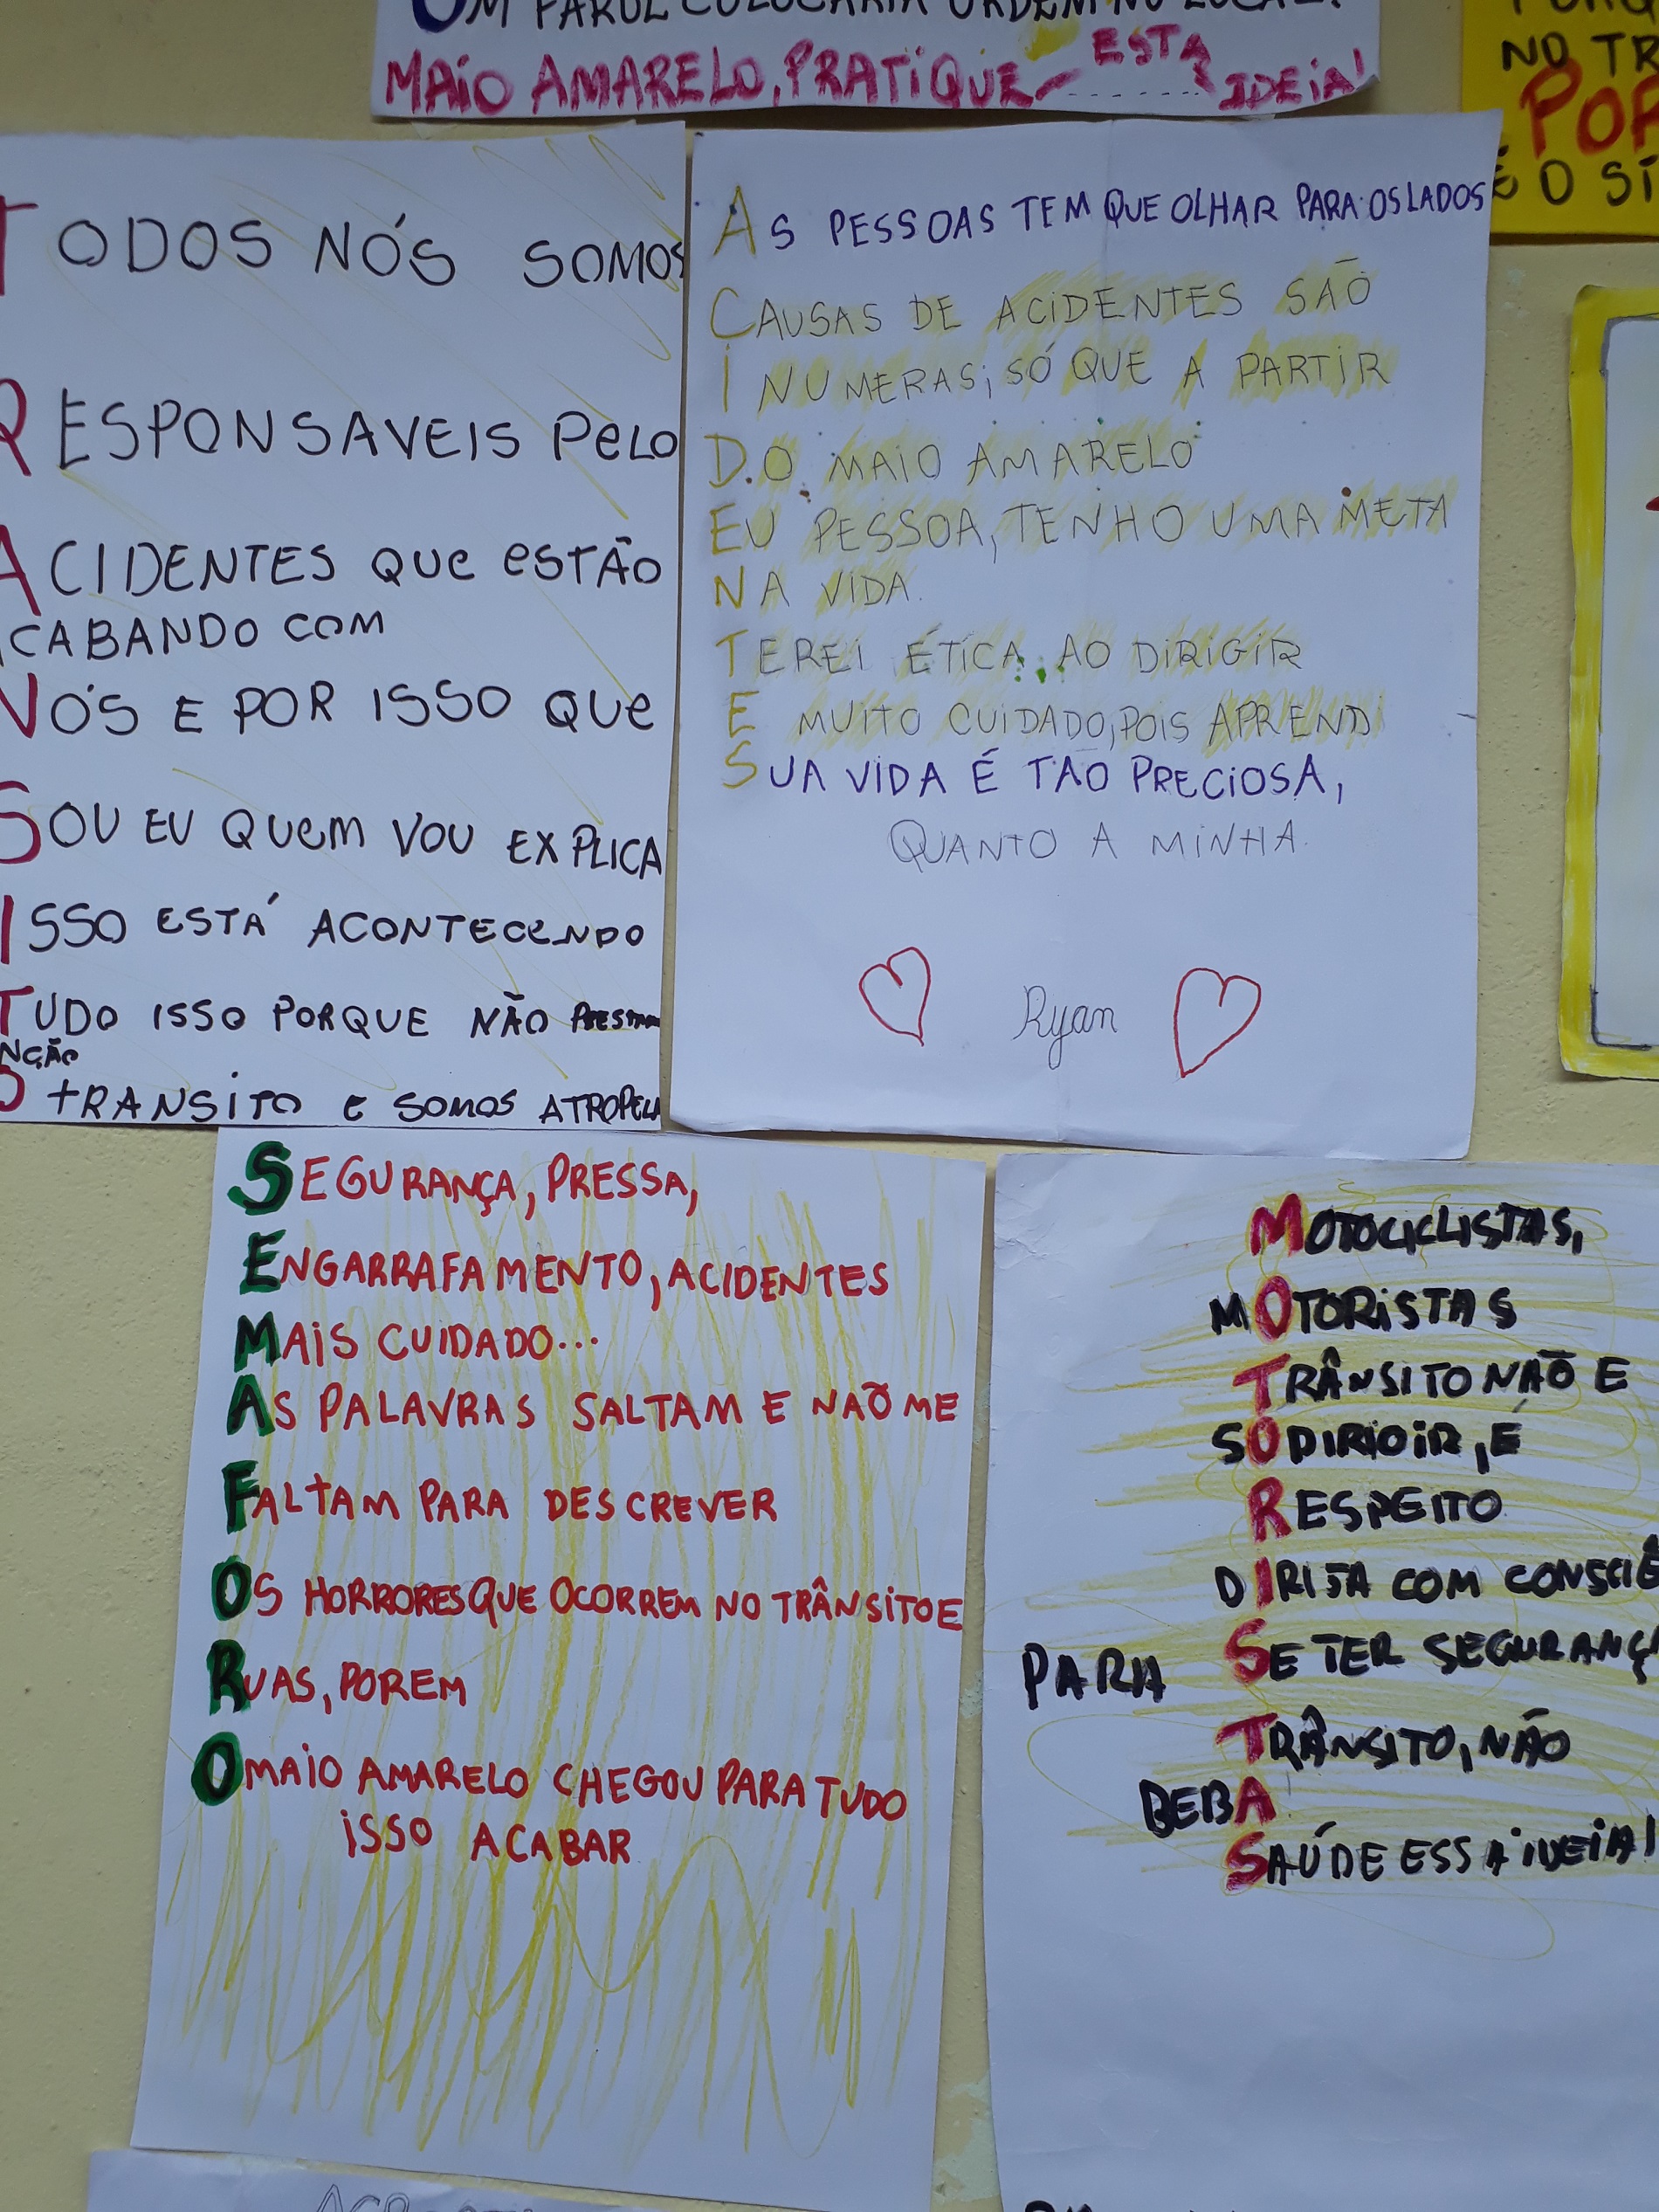 UM FAROL COLOCARIA ORDEM NO LOCAL!
MAIO AMARELO, PRATIQUE ESTA
IDEIA!
NO TR
POR
É O SI
TODOS NÓS SOMOS
RESPONSAVEIS PELO
ACIDENTES QUE ESTÃO
ACABANDO COM
NÓS E POR ISSO QUE
SOU EU QUEM VOU EXPLICA
ISSO ESTÁ ACONTECENDO
TUDO ISSO PORQUE NÃO
NÇÃO
O TRANSITO E SOMOS ATROPELA
AS PESSOAS TEM QUE OLHAR PARA OS LADOS
CAUSAS DE ACIDENTES SÃO
INUMERAS; SÓ QUE A PARTIR
DO MAIO AMARELO
EU PESSOA, TENHO UMA META
NA VIDA.
TEREI ÉTICA, AO DIRIGIR
E MUITO CUIDADO, POIS APRENDI
SUA VIDA É TÃO PRECIOSA,
QUANTO A MINHA.
Ryan
SEGURANÇA, PRESSA,
ENGARRAFAMENTO, ACIDENTES
MAIS CUIDADO...
AS PALAVRAS SALTAM E NÃO ME
FALTAM PARA DESCREVER
OS HORRORES QUE OCORREM NO TRÂNSITO E
RUAS, POREM
O MAIO AMARELO CHEGOU PARA TUDO
ISSO ACABAR
MOTOCICLISTAS,
MOTORISTAS
TRÂNSITO NÃO E
SO DIRIGIR, É
RESPEITO
DIRIJA COM CONSCIÊ
PARA SE TER SEGURANÇ
TRÂNSITO, NÃO
BEBA
SAÚDE ESSA IDEIA!